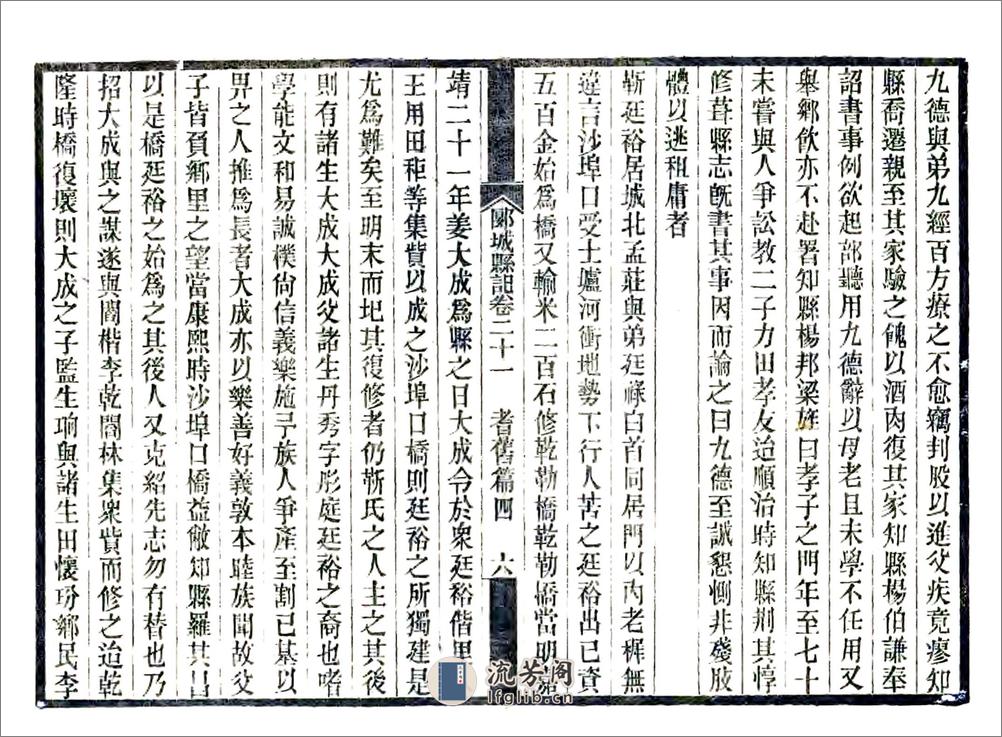 九德與弟九經百方療之不愈竊刲股以進父疾竟瘳知
縣喬遷親至其家驗之餽以酒肉復其家知縣楊伯謙奉
詔書事例欲起部聽用九德辭以母老且未學不任用又
舉鄉飲亦不赴署知縣楊邦梁旌曰孝子之門年至七十
未嘗與人爭訟教二子力田孝友迨順治時知縣荆其惇
修葺縣志既書其事因而論之曰九德至誠懇惻非殘肢
體以逃租庸者
靳廷裕居城北孟莊與弟廷祿白首同居門以內老穉無
違言沙埠口受土壚河衝地勢下行人苦之廷裕出己貲
五百金始為橋又輸米二百石修乾勒橋乾勒橋當明嘉
郾城縣記卷二十一 耆舊篇四 六
靖二十一年姜大成為縣之日大成令於衆廷裕偕里
王用田秬等集貲以成之沙埠口橋則廷裕之所獨建是
尤為難矣至明末而圮其復修者仍靳氏之人主之其後
則有諸生大成大成父諸生丹秀字彤庭廷裕之裔也嗜
學能文和易誠樸尚信義樂施予族人爭產至割己墓以
畀之人推為長者大成亦以樂善好義敦本睦族聞故父
子皆負鄉里之望當康熙時沙埠口橋益敝知縣羅其昌
以是橋廷裕之始為之其後人又克紹先志勿有替也乃
招大成與之謀遂與閻楷李乾閻林集衆貲而修之迨乾
隆時橋復壞則大成之子監生珦與諸生田懷玢鄉民李
流芳阁
lfglib.cn